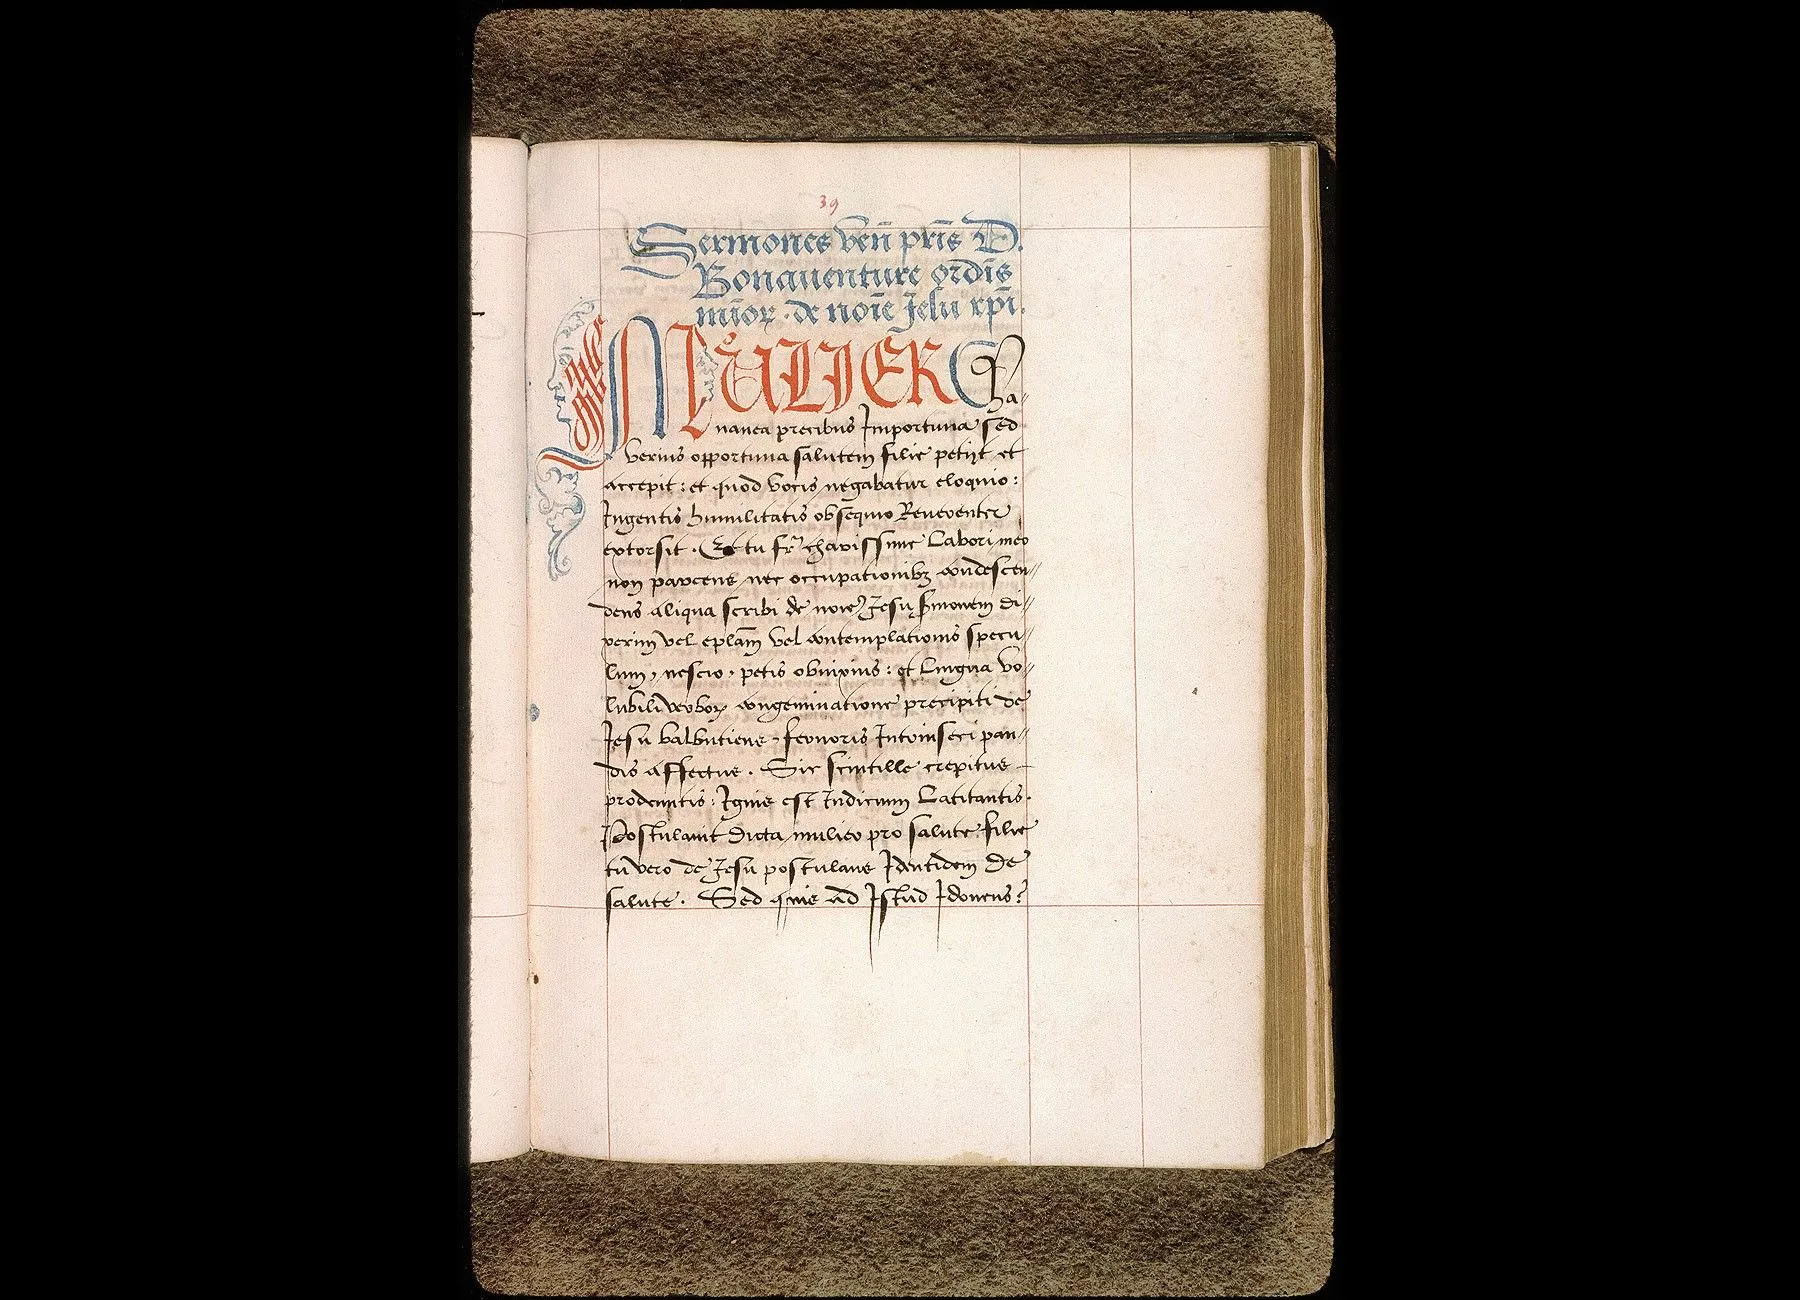 39
Sermones veñ pr̃is D.
Bonauenture ordĩs
mĩoꝝ . de noĩe Jesu xp̃i.
MULIER Cha⸗
nanea precibus Importuna sed
verius opportuna salutem filie petijt et
accepit : et quod vocis negabatur eloquio :
Ingentis humilitatis obsequio Reuerenter
extorsit . Et tu fr̃ charissime Labori meo
non parcens nec occupationibꝫ condescen⸗
dens aliqua scribi de noĩe Jesu Smonem di⸗
xerim vel epl̃am vel contemplationis specu⸗
lum, nescio, petis obnixius : et Lingua vo⸗
lubili verboꝝ congeminatione precipiti de
Jesu balbutiens feruoris Intrinseci pan⸗
dis affectus . Sic scintille crepitus
prodeuntis : Ignis est Indicium Latitantis .
Postulauit dicta mulier pro salute filie
tu vero de Jesu postulans Identidem de
salute . Sed quis ad Istud Idoneus ?